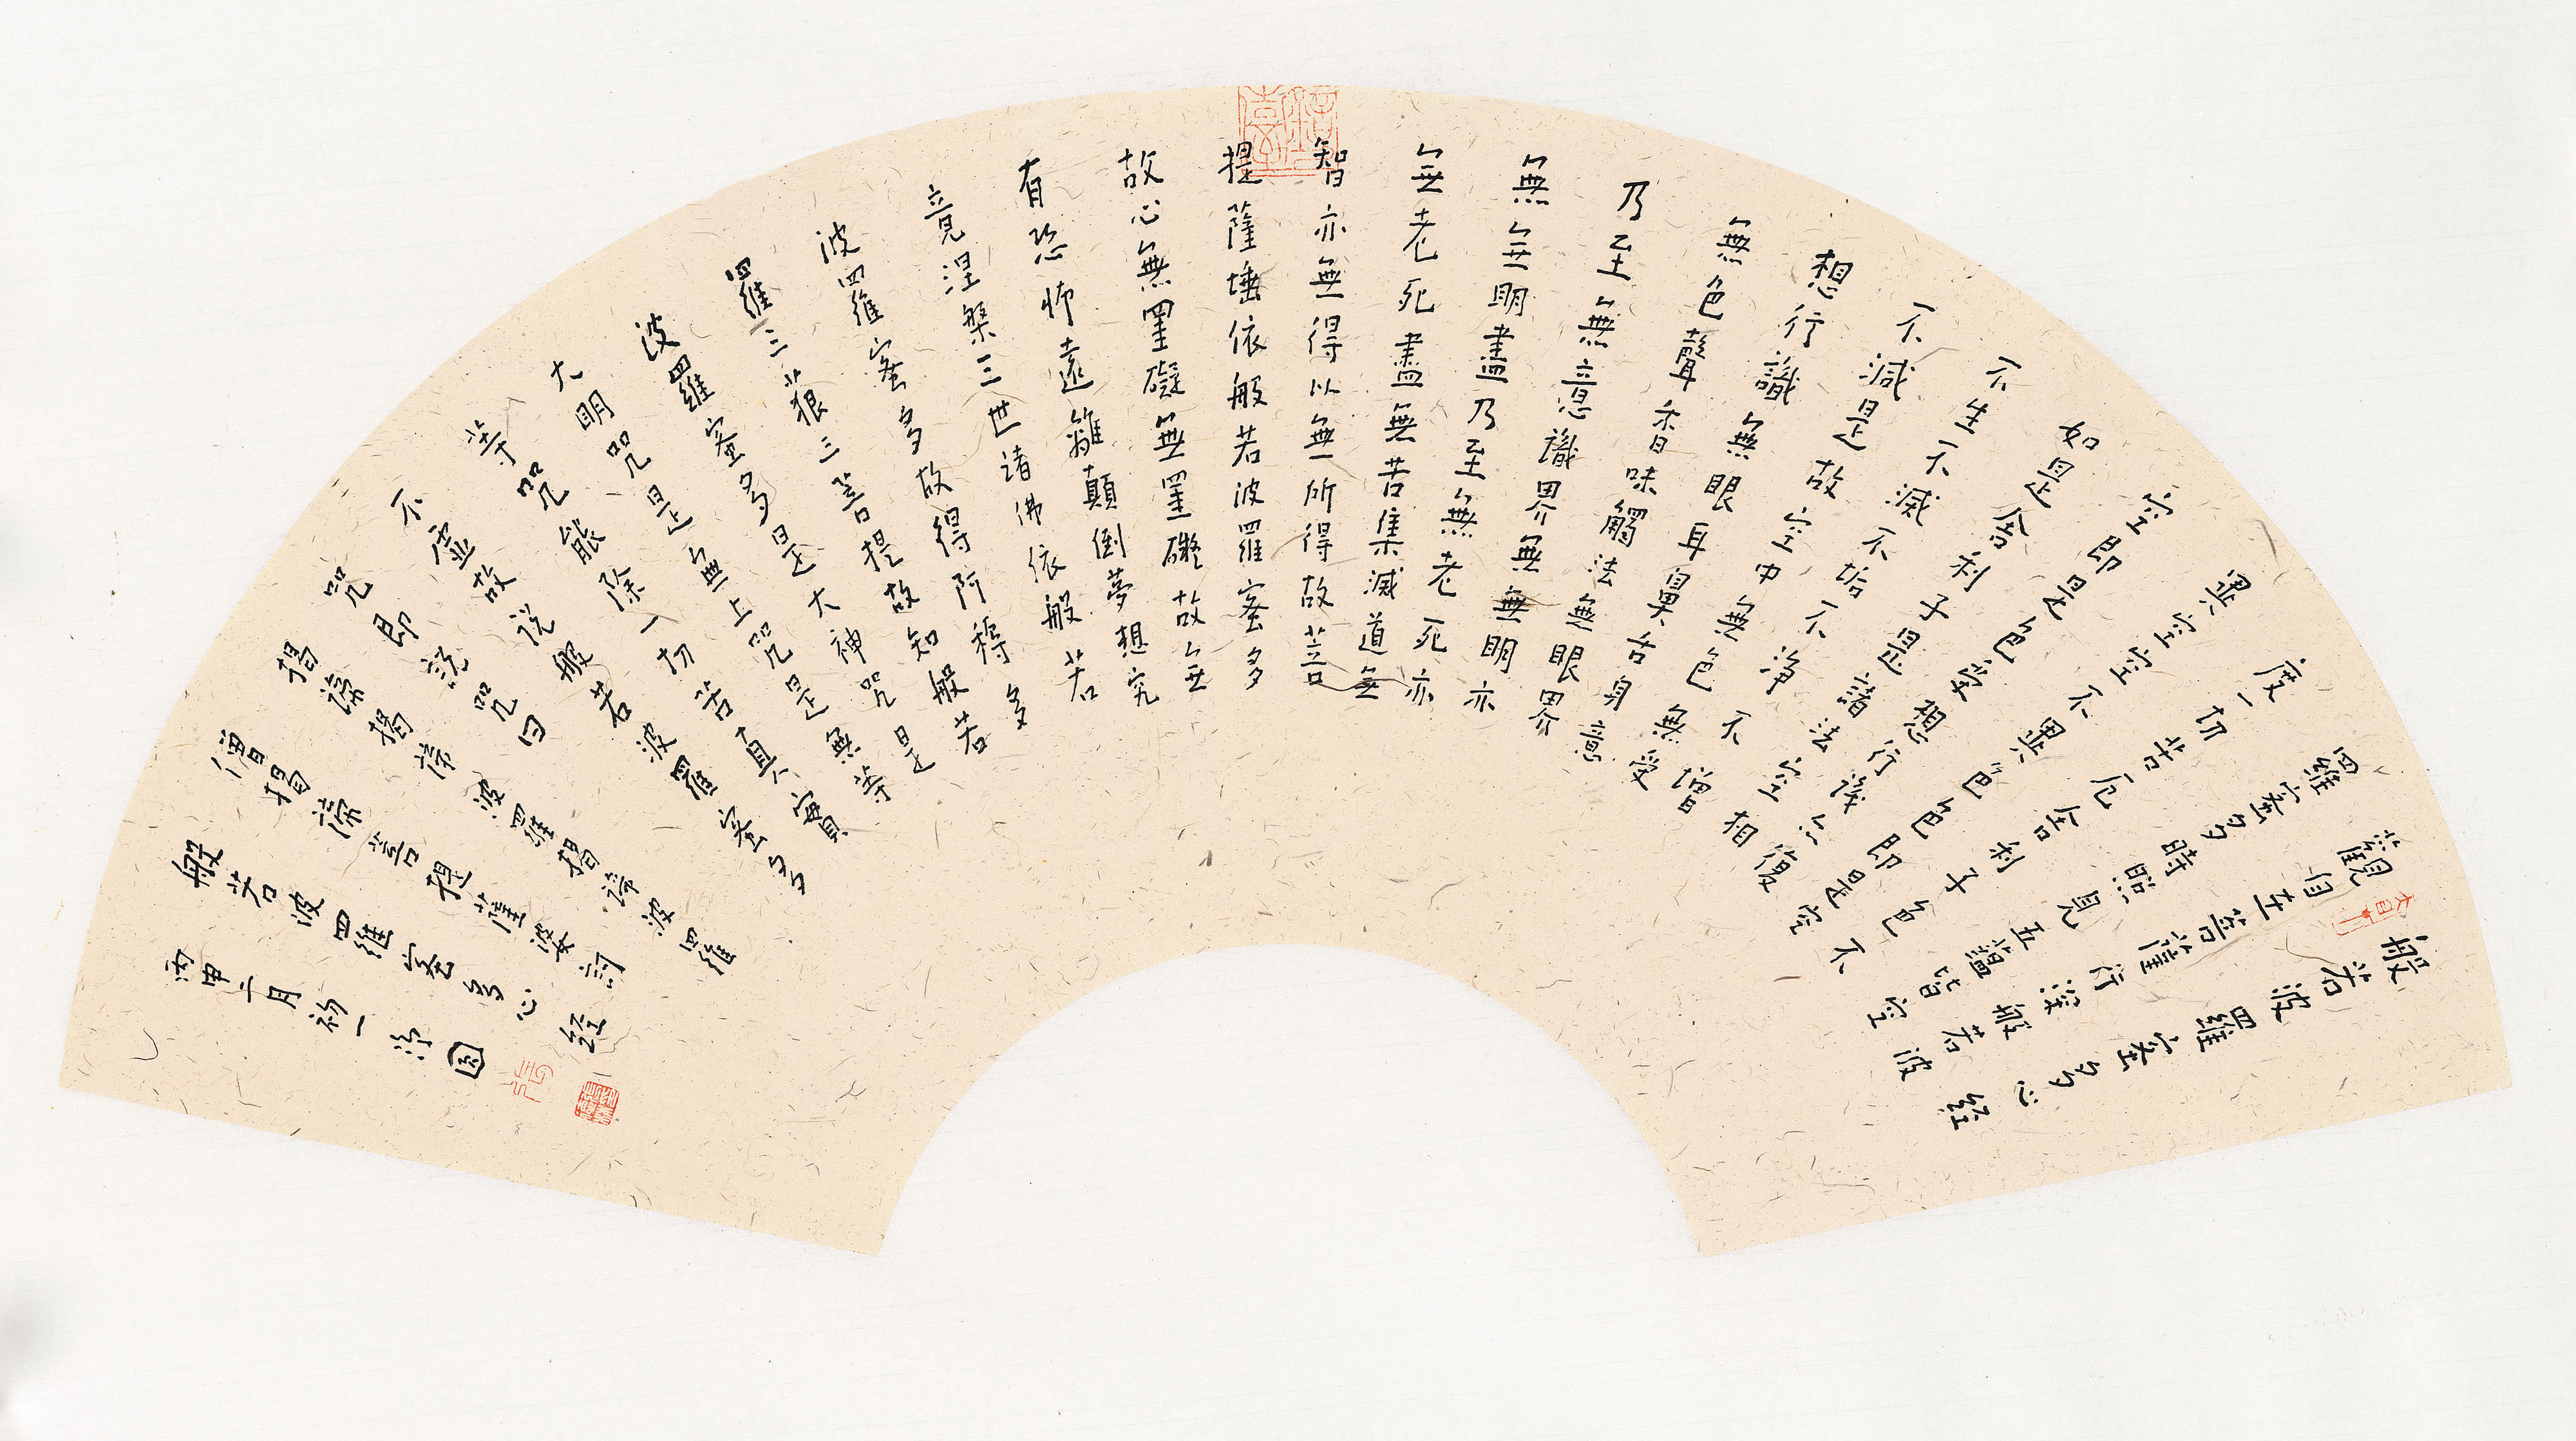 般若波羅蜜多心經
觀自在菩薩行深般若波
羅蜜多時照見五蘊皆空
度一切苦厄舍利子色不
異空空不異色色即是空
空即是色受想行識亦復
如是舍利子是諸法空相
不生不滅不垢不淨不增
不減是故空中無色無受
想行識無眼耳鼻舌身意
無色聲香味觸法無眼界
乃至無意識界無無明亦
無無明盡乃至無老死亦
無老死盡無苦集滅道無
智亦無得以無所得故菩
提薩埵依般若波羅蜜多
故心無罣礙無罣礙故無
有恐怖遠離顛倒夢想究
竟涅槃三世諸佛依般若
波羅蜜多故得阿耨多
羅三藐三菩提故知般若
波羅蜜多是大神咒是
大明咒是無上咒是無等
等咒能除一切苦真實
不虛故說般若波羅蜜多
咒即說咒曰
揭諦揭諦波羅揭諦波羅
僧揭諦菩提薩婆訶
般若波羅蜜多心經
丙申二月初一